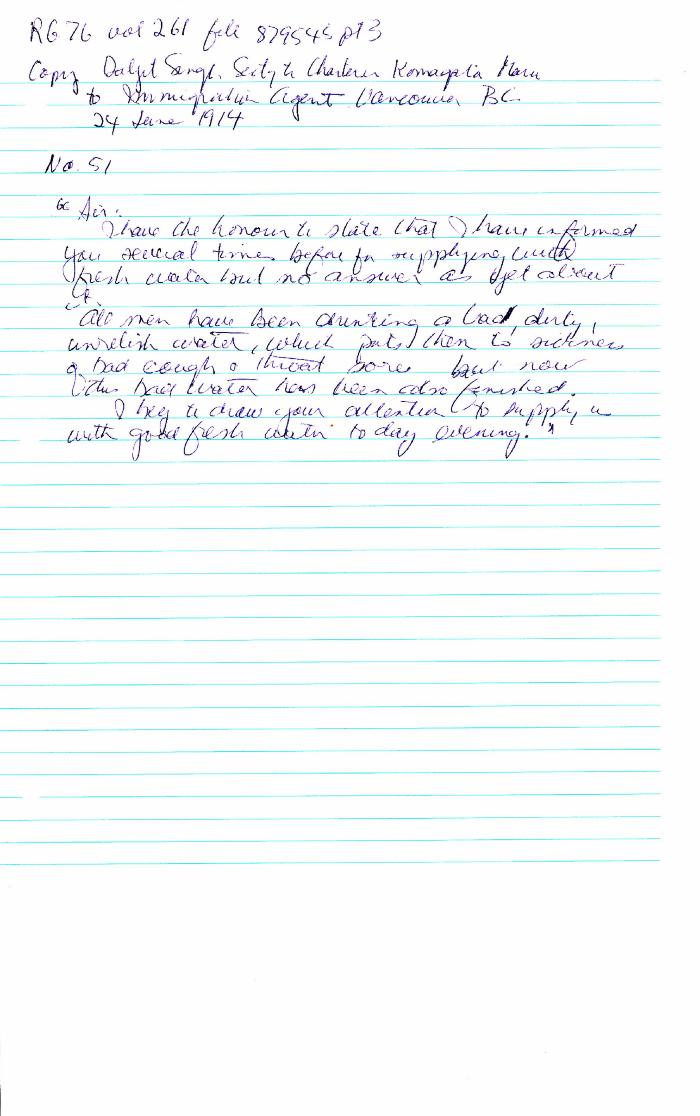 RG 76 vol 261 file 879545 pt 3
Copy Daljit Singh, Secty to Charterer Komagata Maru
to Immigration Agent Vancouver BC
24 June 1914
No. 51
" Sir:
I have the honour to state that I have informed
you several times before for supplying with
fresh water but no answer as yet about
it.
All men have been drinking a bad, dirty,
unrelish water, which puts them to sickness
of bad cough & throat sore but now
this bad water has been also finished.
I beg to draw your attention to supply us
with good fresh water to day evening."